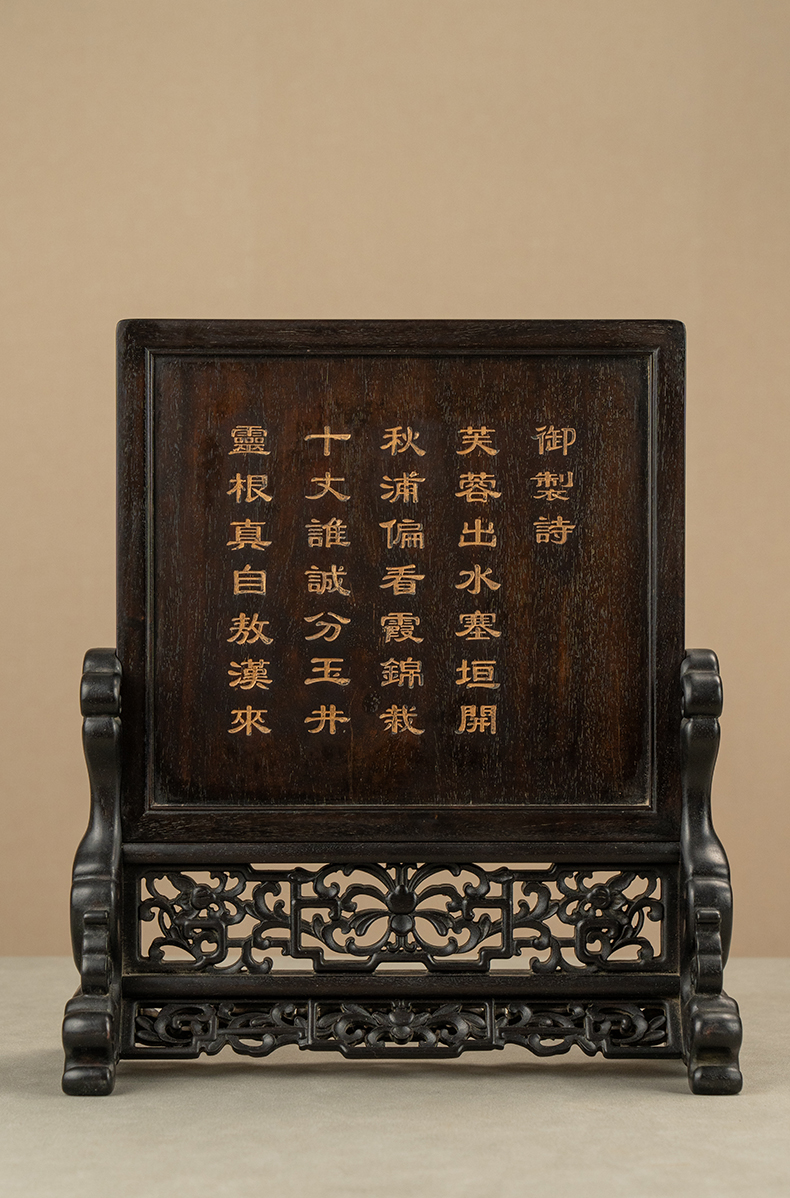 御製詩
芙蓉出水塞垣開
秋浦偏看霞錦栽
十丈誰誠分玉井
靈根真自敖漢來